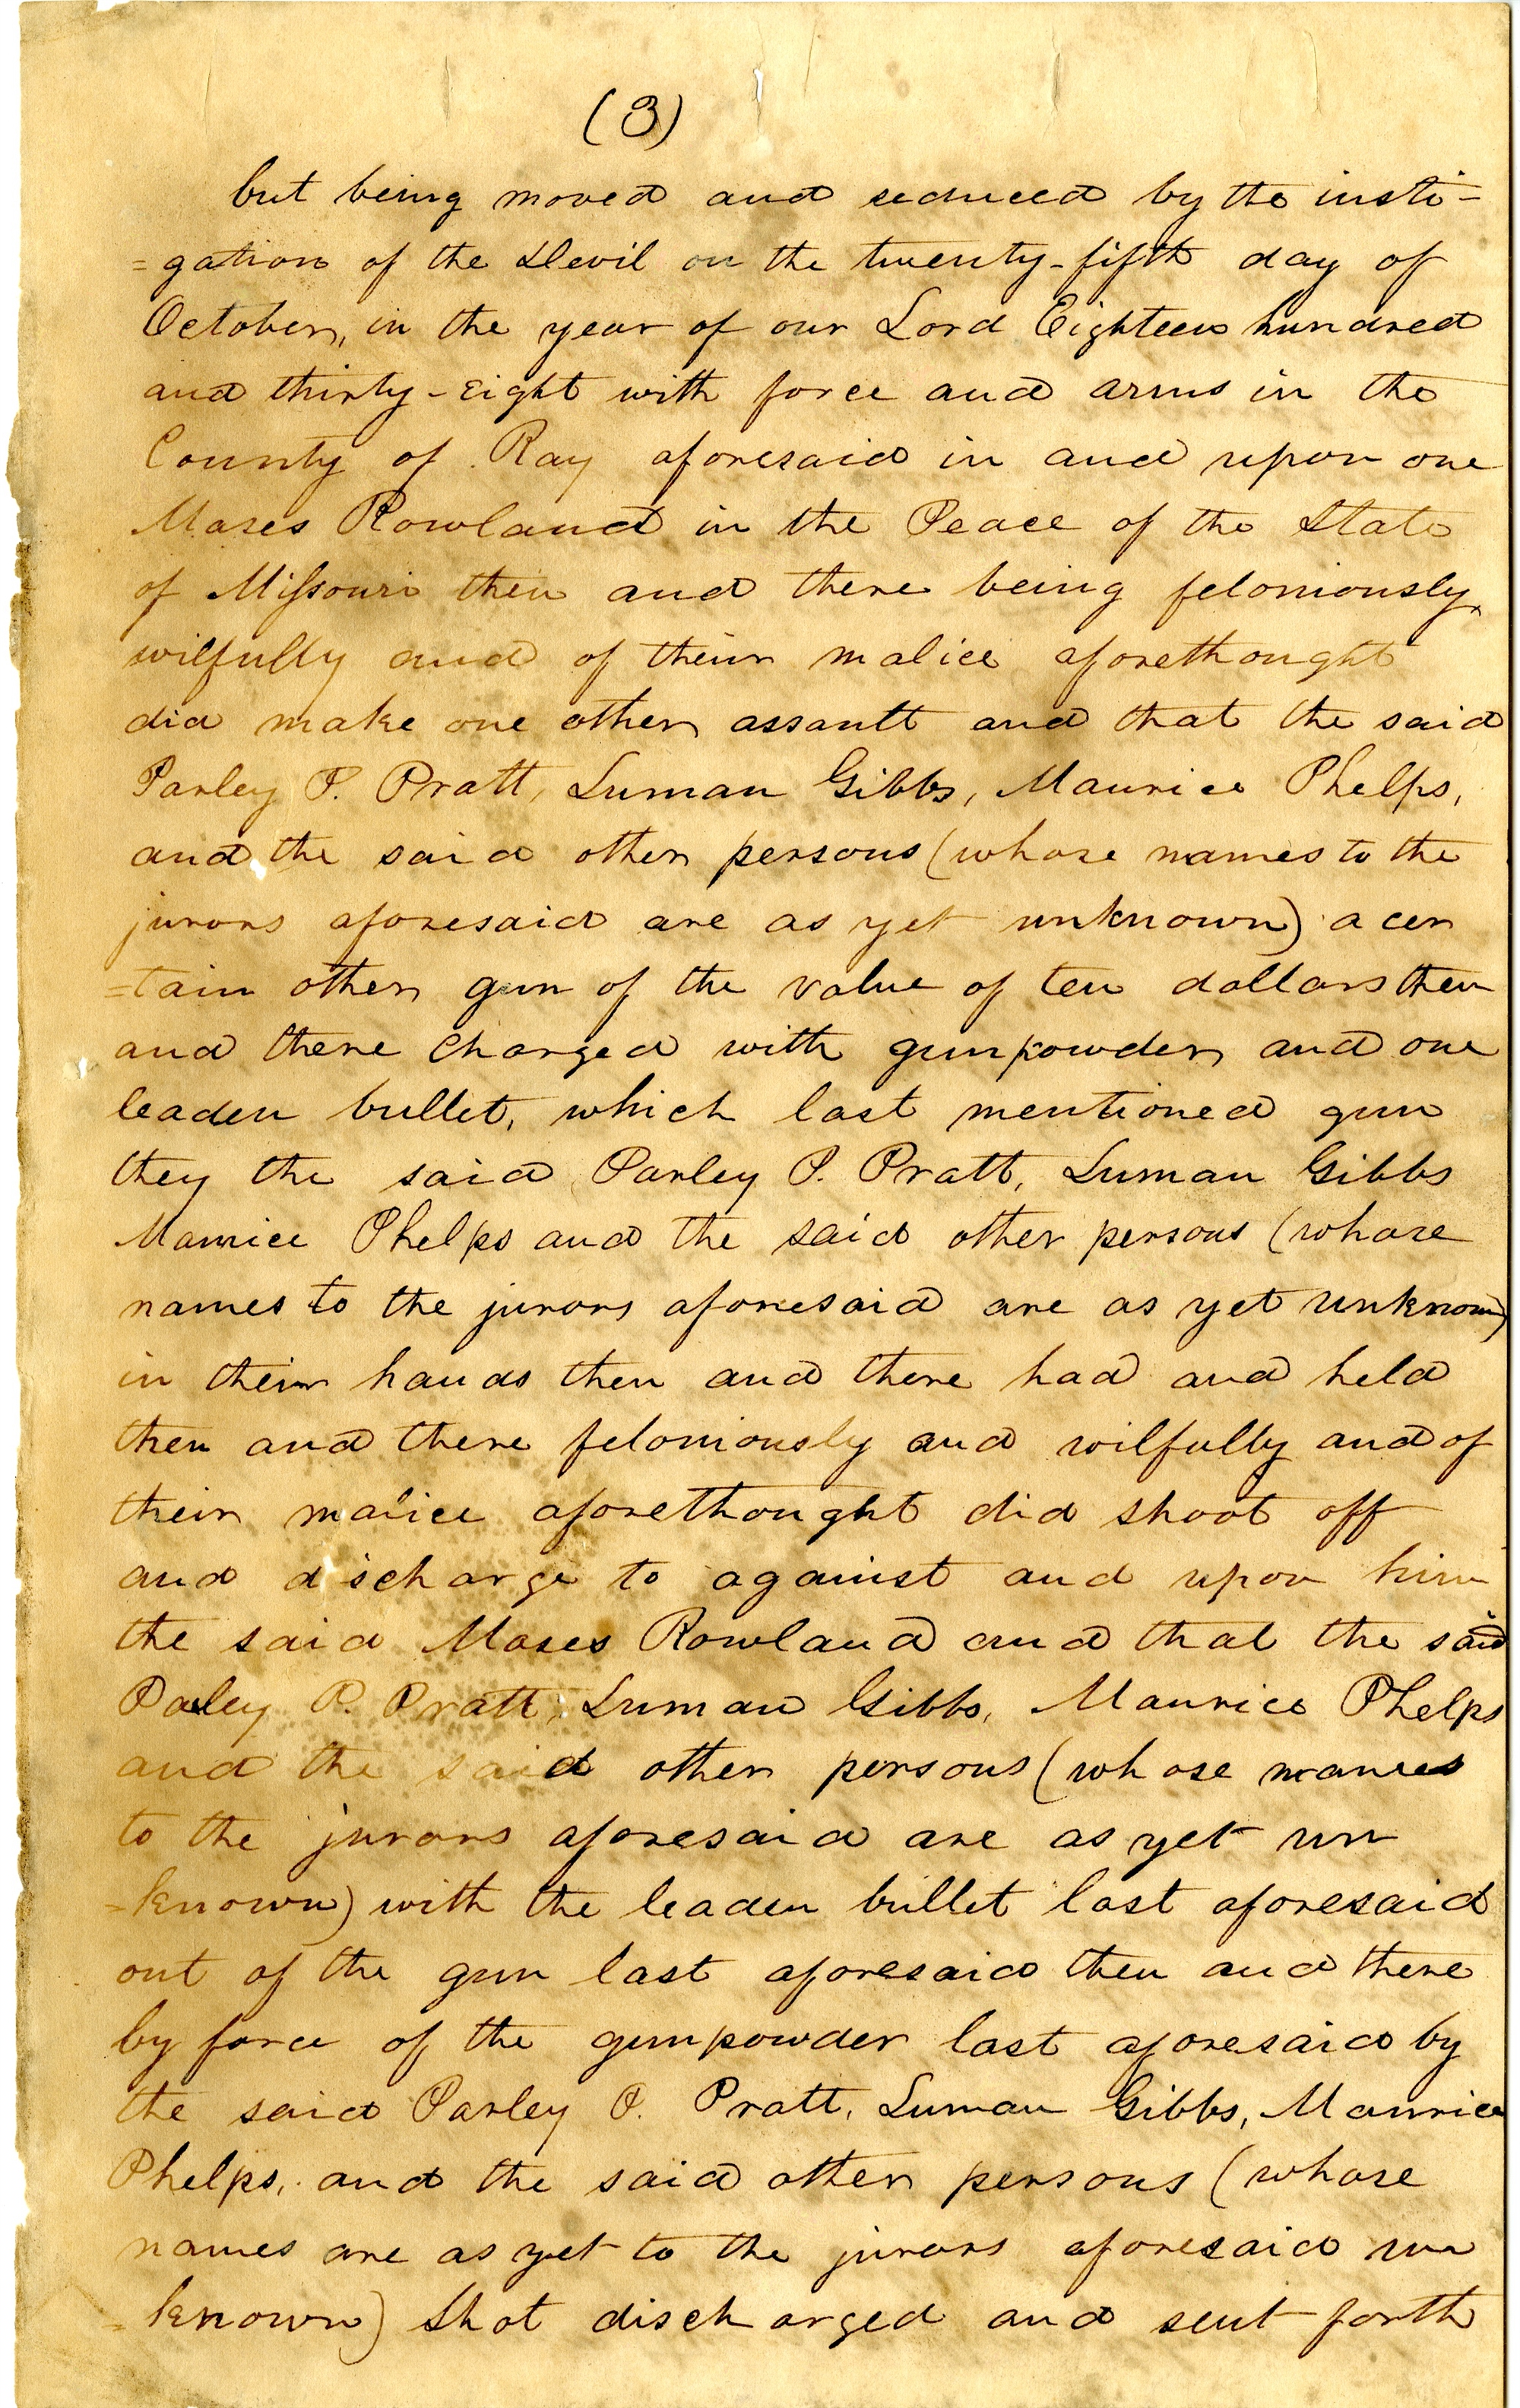 (3)
but being moved and seduced by the insti-
=gation of the Devil on the twenty-fifth day of
October, in the year of our Lord Eighteen hundred
and thirty-eight with force and arms in the
County of Ray aforesaid in and upon one
Moses Rowland in the Peace of the State
of Missouri then and there being feloniously,
wilfully and of their malice aforethought
did make one other assault and that the said
Parley P. Pratt, Luman Gibbs, Maurice Phelps,
and the said other persons (whose names to the
jurors aforesaid are as yet unknown) a cer
=tain other gun of the value of ten dollars then
and there charged with gunpowder and one
leaden bullet, which last mentioned gun
they the said Parley P. Pratt, Luman Gibbs
Maurice Phelps and the said other persons (whose
names to the jurors aforesaid are as yet unknown)
in their hands then and there had and held
then and there feloniously and wilfully and of
their malice aforethought did shoot off
and discharge to against and upon him
the said Moses Rowland and that the said
Parley P. Pratt, Luman Gibbs, Maurice Phelps
and the said other persons (whose names
to the jurors aforesaid are as yet un
=known) with the leaden bullet last aforesaid
out of the gun last aforesaid then and there
by force of the gunpowder last aforesaid by
the said Parley P. Pratt, Luman Gibbs, Maurice
Phelps, and the said other persons (whose
names are as yet to the jurors aforesaid un
=known) shot discharged and sent forth